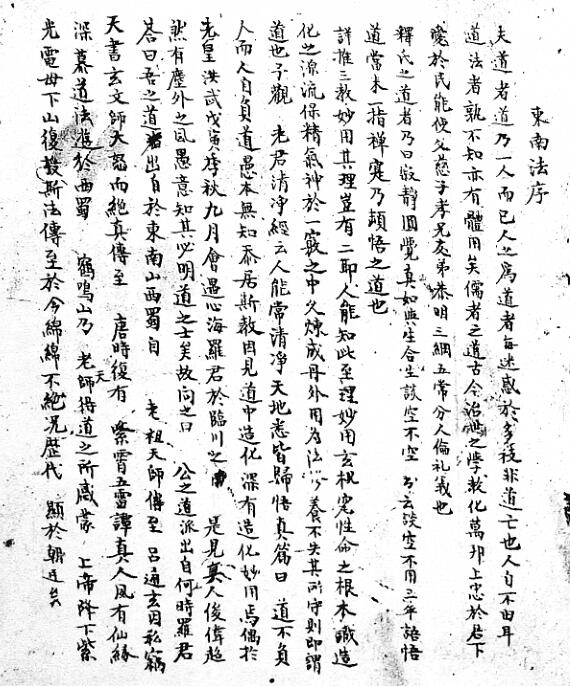 東南法序
夫道者道乃一人而已人之爲道者每迷惑於多徑非道亡也人自不由耳
道法者孰不知亦有體用矣儒者之道古今治世之學教化萬邦上忠於君下
愛於民能使父慈子孝兄友弟恭明三綱五常分人倫礼義也
釋氏之道者乃曰寂靜圓覺真如無生合生談空不空 云談空不用三年語悟
道當未一指禅寔乃頓悟之道也
詳推三教妙用其理豈有二耶人能知此至理妙用玄机寔性命之根本職造
化之源流保精氣神於一竅之中久煉成丹外用為法 養不失其所守則即謂
道也予觀 老君清凈經云人能常清凈天地悉皆歸悟真篇曰 道不負
人而人自負道愚本無知忝居斯教因見道中造化深有造化妙用焉偶於
先皇洪武戊寅季秋九月會遇心海羅君於臨川之 是見真人俊偉超
然有塵外之風愚意知其必明道之士矣故问之曰 公之道派出自何時羅君
答曰吾之道 出自於東南山西蜀自 老祖天師傳至 呂通玄因私竊
天書玄文師大怒而絶真傳至 唐時復有 紫霄五雷譚真人夙有仙緣
深慕道法進於西蜀 鶴鳴山乃 老天師得道之所感蒙 上帝降下紫
光電母下山復授斯法傳至於今綿綿不絶况歷代 顯於朝廷矣